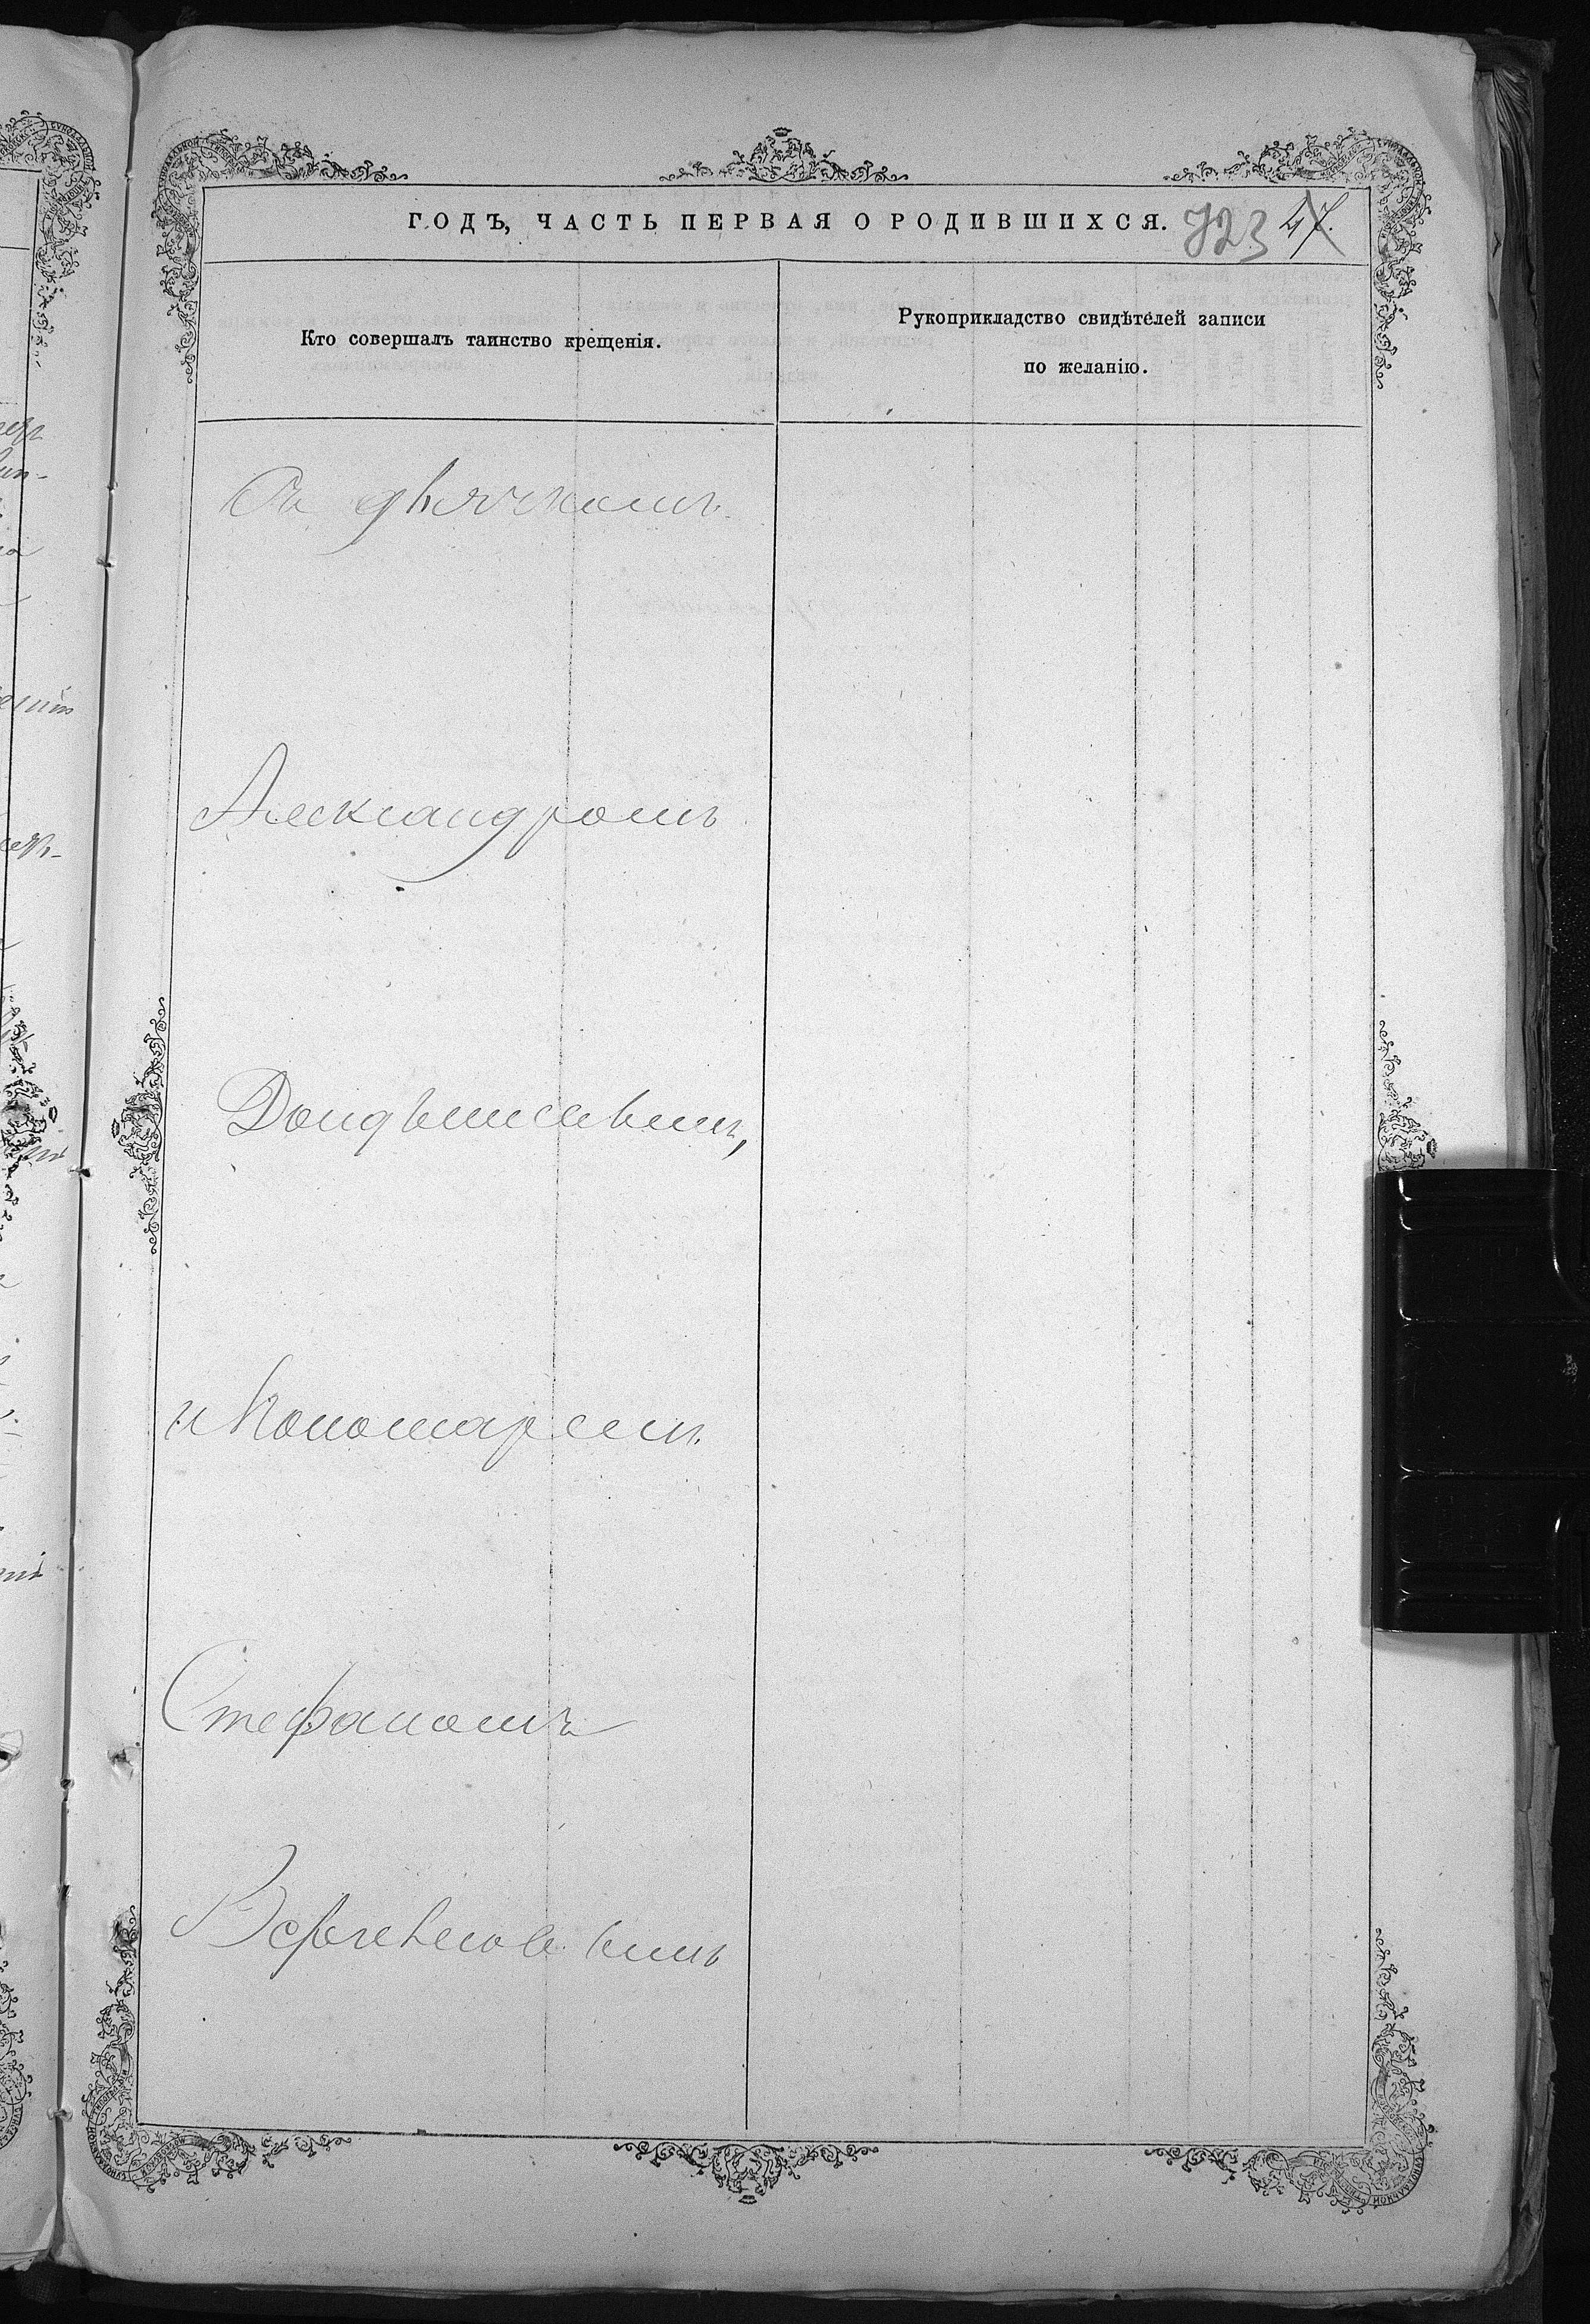 ГОДЪ, ЧАСТЬ ПЕРВАЯ О РОДИВШИХСЯ. 723 47.
Кто совершалъ таинство крещенія.
Рукоприкладство свидѣтелей записи
по желанію.
Съ дьячкомъ
Александромъ
и Пономаремъ
Стефаномъ